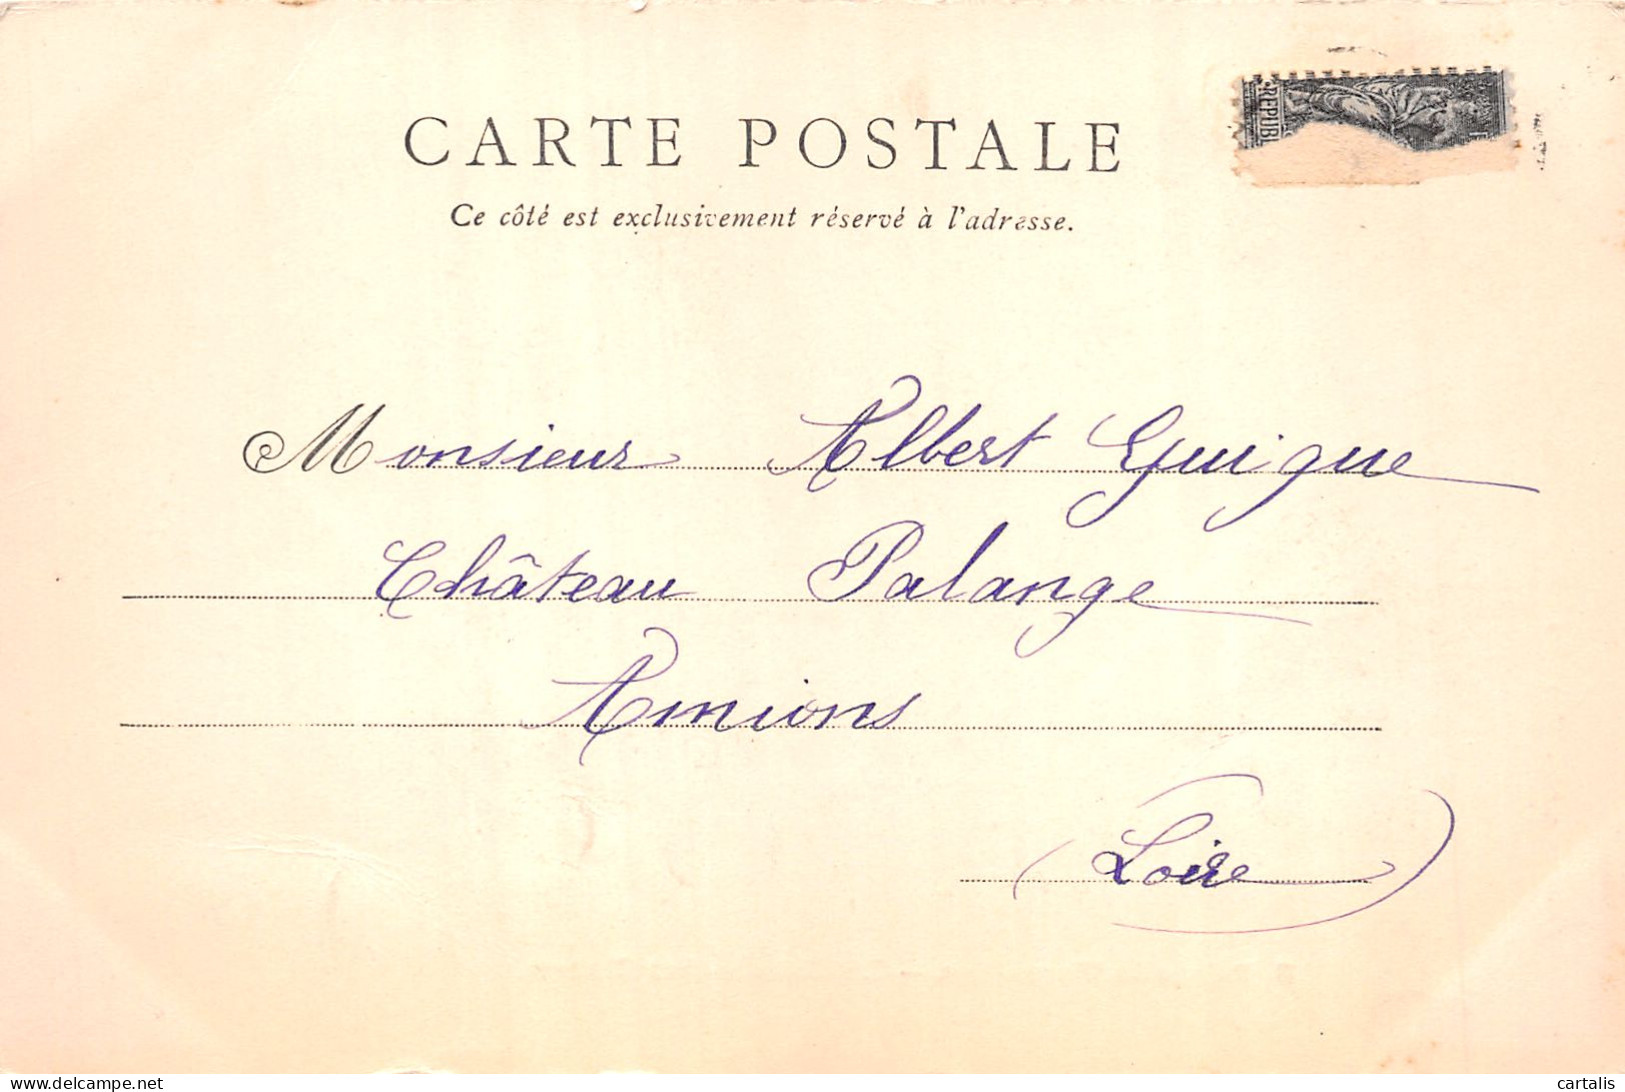 CARTE POSTALE
Ce côté est exclusivement réservé à l'adresse.
RÉPUBL
Monsieur Albert Guigue
Château Palange
Amions
(Loire)
www.delcampe.net
cartalis